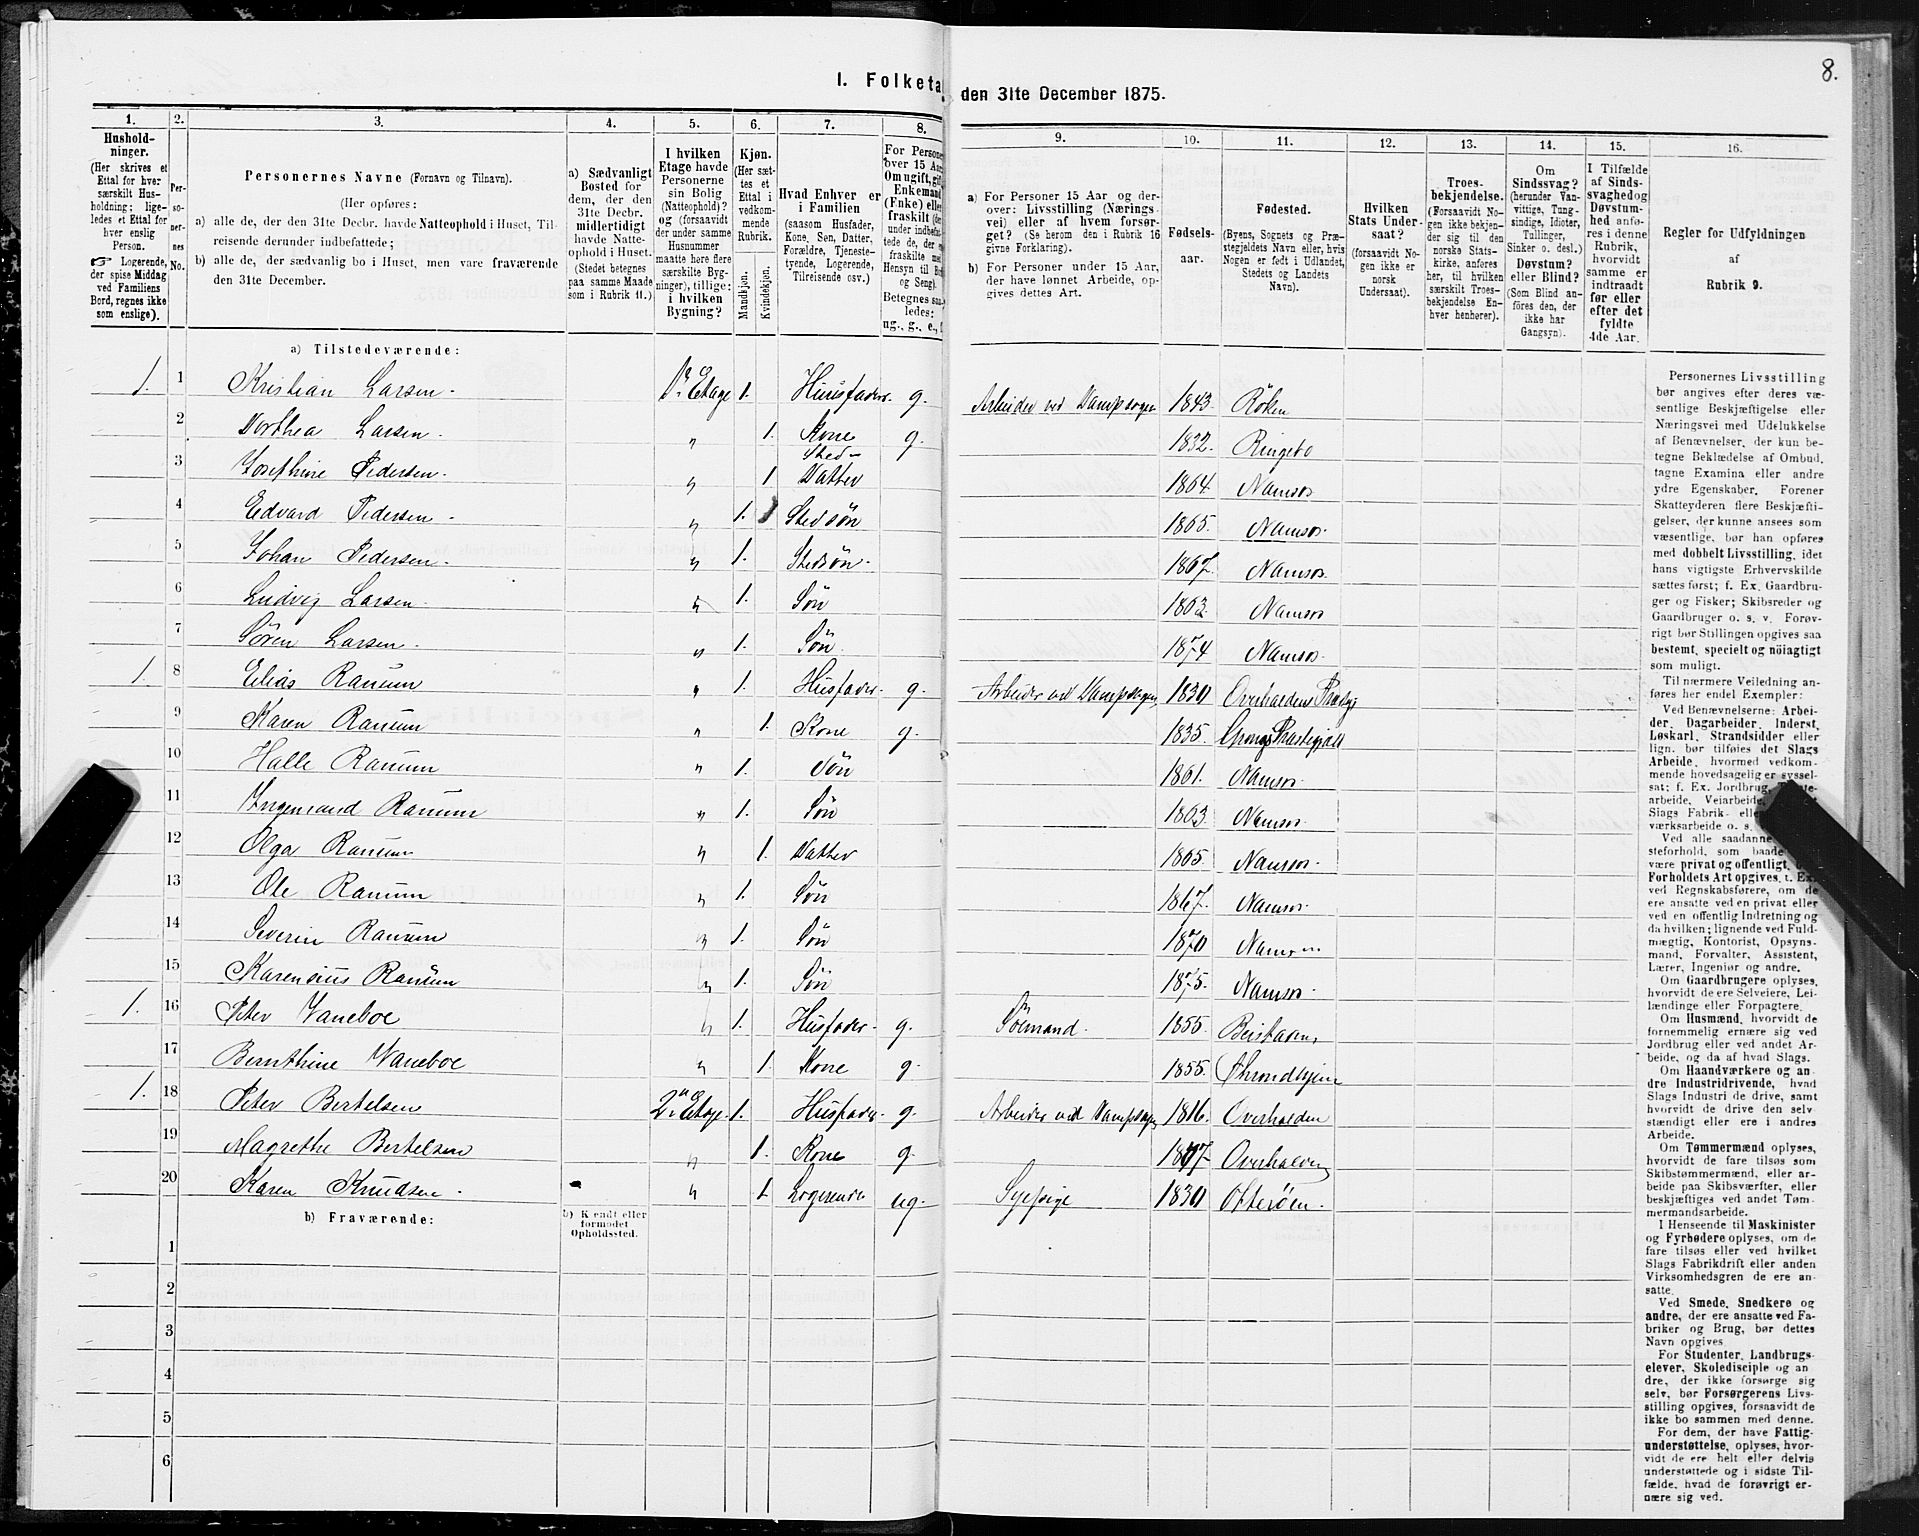 8.
I. Folketa
den 31te December 1875.
1. 2. 3. 4. 5. 6. 7. 8. 9. 10. 11. 12. 13. 14. 15. 16.
Hushold-
ninger.
(Her skrives et
Ettal for hver
særskilt Hus-
holdning; lige-
ledes et Ettal for
hver enslig
Person.
☞ Logerende,
der spise Middag
ved Familiens
Bord, regnes ikke
som enslige).
Per-
so-
ner-
nes
No.
Personernes Navne (Fornavn og Tilnavn).
(Her opføres:
a) alle de, der den 31te Decbr. havde Natteophold i Huset, Til-
reisende derunder indbefattede;
b) alle de, der sædvanlig bo i Huset, men vare fraværende
den 31te December.
a) Sædvanligt
Bosted for
dem, der den
31te Decbr.
midlertidigt
havde Natte-
ophold i Huset.
(Stedet betegnes
paa samme Maade
som i Rubrik 11.)
I hvilken
Etage havde
Personerne
sin Bolig
(Natteophold)?
og (forsaavidt
der under samme
Husnummer
maatte høre flere
særskilte Byg-
ninger), tillige:
i hvilken
Bygning?
Kjøn.
(Her sæt-
tes et
Ettal i
vedkom-
mende
Rubrik.
Mandkjøn.
Kvindekjøn.
Hvad Enhver er
i Familien
(saasom Husfader,
Kone, Søn, Datter,
Forældre, Tjeneste-
tyende, Logerende,
Tilreisende osv.)
For Persone
over 15 Aa
Om ugift, gif
Enkemand
(Enke) elle
fraskilt (de
under indbefat
tede de, der e
fraskilte med
Hensyn til Bo
og Seng).
Betegnes saa-
ledes:
ug., g., e., f
a) For Personer 15 Aar og der-
over: Livsstilling (Nærings-
vei) eller af hvem forsør-
get? (Se herom den i Rubrik 16
givne Forklaring).
b) For Personer under 15 Aar,
der have lønnet Arbeide, op-
gives dettes Art.
Fødsels-
aar.
Fødested.
(Byens, Sognets og Præ-
stegjeldets Navn eller, hvis
Nogen er født i Udlandet,
Stedets og Landets
Navn).
Hvilken
Stats Under-
saat?
(forsaavidt No-
gen ikke er
norsk
Undersaat).
Troes-
bekjendelse.
(Forsaavidt No-
gen ikke bekjen-
der sig til den
norske Stats-
kirke, anføres
her, til hvilken
særskilt Troes-
bekjendelse En-
hver henhører).
Om
Sindssvag?
(herunder Van-
vittige, Tung-
sindige, Idioter,
Tullinger,
Sinker o. desl.)
Døvstum?
eller Blind?
(Som Blind an-
føres den, der
ikke har
Gangsyn).
I Tilfælde
af Sinds-
svaghed og
Døvstum-
hed anfø-
res i denne
Rubrik,
hvorvidt
samme er
indtraadt
før eller
efter det
fyldte
4de Aar.
Regler for Udfyldningen
af
Rubrik 9.
a) Tilstedeværende:
1. 1 Kristian Larsen. 1. Etage 1. Husfader. g. Arbeider ved Dampsagen 1843. Röken
2 Dorthea Larsen. " 1. Kone g. 1832. Ringebo
3 Josephine Pedersen. " 1 Sted-
Datter 1864. Namsos
4 Edvard Pedersen. " 1. Stedsön 1865. Namsos.
5 Johan Pedersen. " 1. Stedsön. 1867. Namsos.
6 Ludvig Larsen. " 1. Sön 1863. Namsos
7 Sören Larsen. " 1. Sön. 1874 Namsos.
1. 8 Elias Ranum " 1. Husfader. g. Arbeider ved Dampsagen, 1830 Overhaldens
9 Karen Ranum " 1. Kone g. 1835.
10 Halle Ranum " 1. Sön 1861. Namsos.
11 Ranum " 1. Sön 1863. Namsos.
12 Olga Ranum " 1. Datter 1865. Namsos.
13 Ole Ranum " 1. Sön 1867. Namsos.
14 Severin Ranum " 1. Sön 1870 Namsos
15 Karensius Ranum " 1. Sön 1875. Namsos.
1. 16 Peter Vaneboe " 1. Husfader. g. Sömand. 1855. Beistaden,
17 Bernthine Vaneboe " 1. Kone g. 1855. Throndhjem
1. 18 Peter Bertelsen 2. Etage. 1. Husfader. g. Arbeider ved Dampsagen 1816. Overhalden
19 Magrethe Bertelsen " 1. Kone g. Overhalden
20 Karen Knudsen. " 1. Logerende ug. Sypige 1830 Otterøen.
b) Fraværende:
b) Kjendt eller
formodet
Opholdssted.
1
2
3
4
5
6
Personernes Livsstilling
bør angives efter deres væ-
sentlige Beskjæftigelse eller
Næringsvei med Udelukkelse
af Benævnelser, der kun be-
tegne Beklædelse af Ombud,
tagne Examina eller andre
ydre Egenskaber. Forener
Skatteyderen flere Beskjæfti-
gelser, der kunne ansees som
væsentlige, bør han opføres
med dobbelt Livsstilling, idet
hans vigtigste Erhvervskilde
sættes først; f. Ex. Gaardbru-
ger og Fisker; Skibsreder og
Gaardbruger o. s. v. Forøv-
rigt bør Stillingen opgives saa
bestemt, specielt og nöiagtigt
som muligt.
Til nærmere Veiledning an-
føres her endel Exempler:
Ved Benævnelserne: Arbei-
der, Dagarbeider, Inderst,
Løskarl, Strandsidder eller
lign. bør tilføies det Slags
Arbeide, hvormed vedkom-
mende hovedsagelig er syssel-
sat; f. Ex. Jordbrug,
arbeide, Veiarbeide,
Slags Fabrik- elle
værksarbeide o. s.
Ved alle saadanne
steforhold, som baade
være privat og offentlig,
Forholdets Art opgives, t. Ex.
ved Regnskabsførere, om de
ere ansatte ved en privat eller
ved en offentlig Indretning og
da hvilken; lignende ved Fuld-
mægtig, Kontorist, Opsyns-
mand, Forvalter, Assistent,
Lærer, Ingeniør og andre.
Om Gaardbrugere oplyses,
hvorvidt de ere Selveiere, Lei-
lændinge eller Forpagtere.
Om Husmænd, hvorvidt de
fornemmelig ernære sig ved
Jordbrug eller ved andet Ar-
beide, og da af hvad Slags.
Om Haandværkere og an-
dre Industridrivende, hvad
Slags Industri de drive, samt
hvorvidt de drive den selv-
stændigt eller ere i andres
Arbeide.
Om Tømmermænd oplyses,
hvorvidt de fare tilsøs som
Skibstømmermænd, eller ar-
beide paa Skibsværfter, eller
beskjæftiges ved andet Tøm-
mermandsarbeide.
I Henseende til Maskinister
og Fyrbødere oplyses, om de
fare tilsøs eller ved hvilket
Slags Fabrikdrift eller anden
Virksomhedsgren de ere an-
satte.
Ved Smede, Snedkere og
andre, der ere ansatte ved Fa-
briker og Brug, bør dettes
Navn opgives.
For Studenter, Landbrugs-
elever, Skoledisciple og an-
dre, der ikke forsørge sig
selv, bør Forsørgerens Livs-
stilling opgives, forsaavidt de
ikke bo sammen med denne.
For dem, der have Fattig-
understøttelse, oplyses, hvor-
vidt de ere helt eller delvis
understøttede og i sidste Til-
fælde, hvad de forøvrigt er-
nære sig ved.